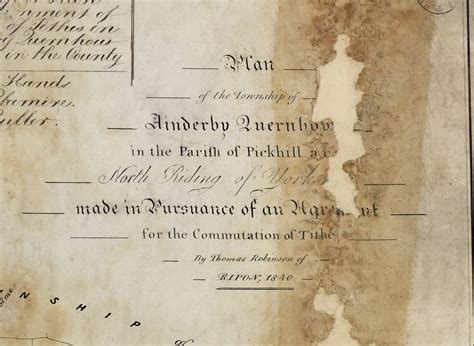 nment of
of Tithes in
y Quernhou
in the County
Hands
Blamire.
uller.
Plan
of the Township of
Ainderby Quernhow
in the Parish of Pickhill a
North Riding of Yorks
made in Pursuance of an Agreement
for the Commutation of Tithe
By Thomas Robinson of
RIPON, 1840.
NSHIP